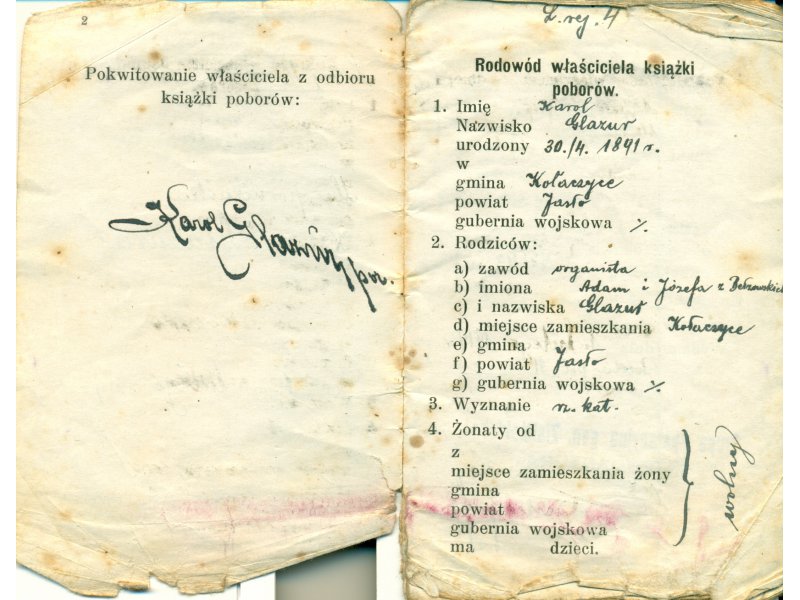 2
Pokwitowanie właściciela z odbioru
książki poborów:
Karol Glazur por.
L. rej. 4
Rodowód właściciela książki
poborów.
1. Imię Karol
Nazwisko Glazur
urodzony 30./4. 1891 r.
w
gmina Kołaczyce
powiat Jasło
gubernia wojskowa %
2. Rodziców:
a) zawód organista
b) imiona Adam i Józefa z
c) i nazwiska Glazur
d) miejsce zamieszkania Kołaczyce
e) gmina
f) powiat Jasło
g) gubernia wojskowa %
3. Wyznanie rz. kat.
4. Żonaty od
z
miejsce zamieszkania żony
gmina
powiat
gubernia wojskowa
ma dzieci.
wolny